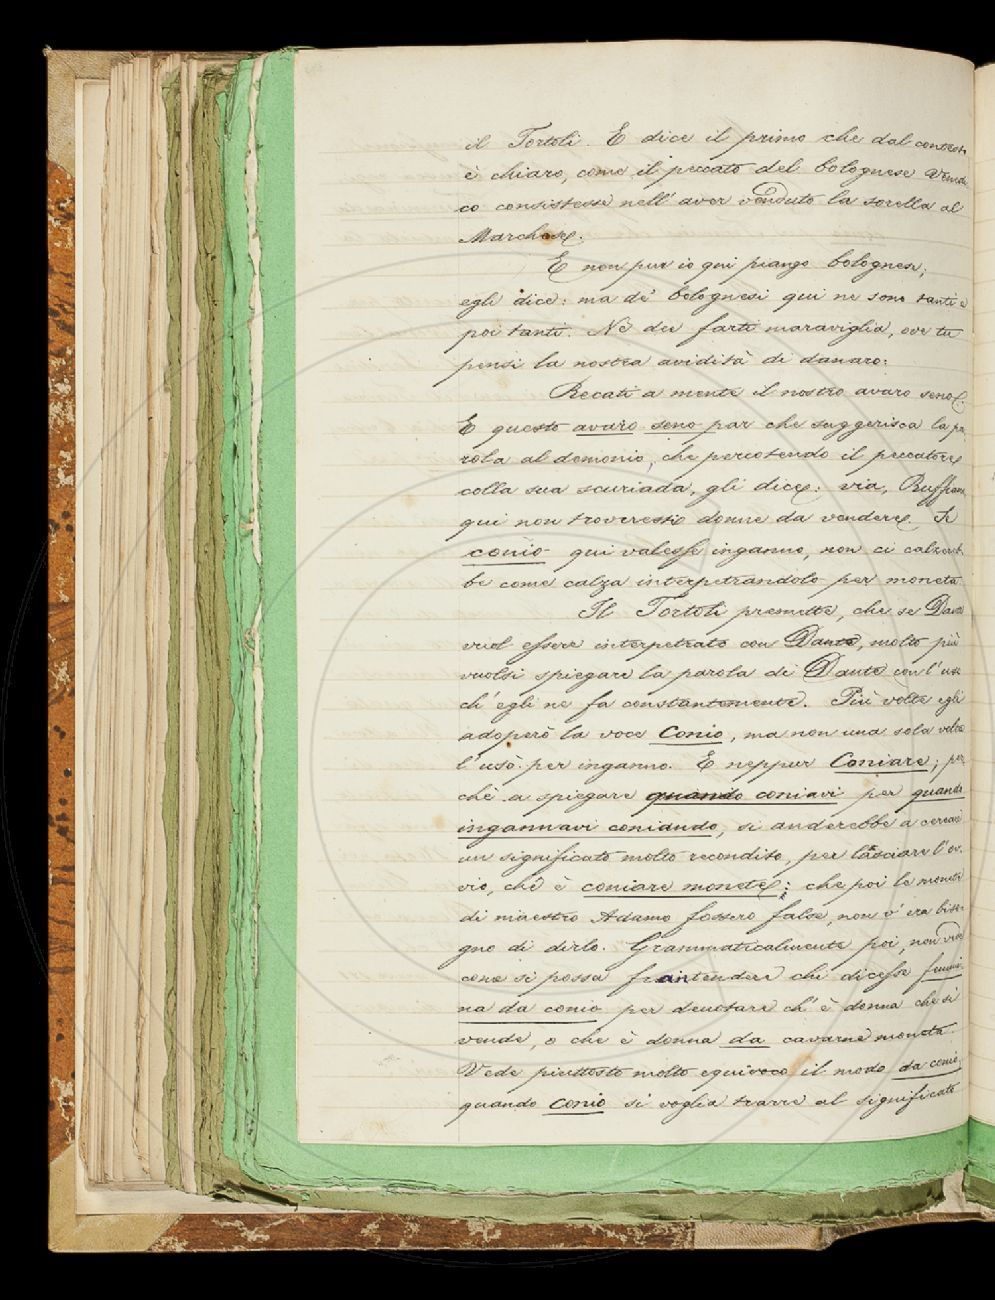 il Tortoli. E dice il primo che dal contesto
è chiaro, come il peccato del bolognese Venedi-
co consistesse nell' aver venduto la sorella al
Marchese.
E non pur io qui piango bolognese;
egli dice: ma de' bolognesi qui ne sono tanti e
poi tanti. Nè dei farti maraviglia, ove tu
pensi la nostra avidità di danaro:
Recati a mente il nostro avaro seno.
E questo avaro seno par che suggerisca la pa-
rola al demonio, che percotendo il peccatore
colla sua scuriada, gli dice: via, Ruffian,
qui non troveresti donne da vendere. Se
conio qui valesse inganno, non ci calzereb-
be come calza interpetrandolo per moneta
Il Tortoli premette, che se Dante
vuol essere interpetrato con Dante, molto più
vuolsi spiegare la parola di Dante con l' uso
ch' egli ne fa constantemente. Più volte egli
adoperò la voce Conio, ma non una sola volta
l' usò per inganno. E neppur Coniare; per-
chè a spiegare quando coniavi per quando
ingannavi coniando, si anderebbe a cercare
un significato molto recondito, per lasciare l' ov-
vio, chè è coniare monete; che poi le monete
di maestro Adamo fossero false, non v' era biso-
gno di dirlo. Grammaticalmente poi, non vede
come si possa frantendere chi dicesse femmi-
na da conio per denotare ch' è donna che si
vende, o che è donna da cavarne moneta.
Vede piuttosto molto equivoco il modo da conio,
quando conio si voglia trarre al significato